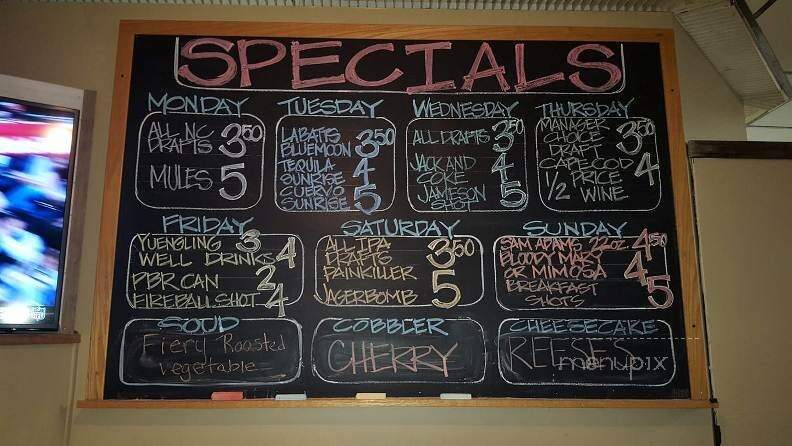 SPECIALS
MONDAY
ALL NC DRAFTS 3.50
MULES 5
TUESDAY
LABATTS
BLUEMOON 3.50
TEQUILA
SUNRISE 4
CUERVO
SUNRISE 5
WEDNESDAY
ALL DRAFTS 3.50
JACK AND
COKE 4
JAMESON
SHOT 5
THURSDAY
MANAGER
CHOICE 3.50
DRAFT
CAPE COD 4
1/2 PRICE
WINE
FRIDAY
YUENGLING 3
WELL DRINKS 4
PBR CAN 2
FIREBALL SHOT 4
SATURDAY
ALL IPA
DRAFTS 3.50
PAINKILLER
JAGERBOMB 5
SUNDAY
SAM ADAMS 22oz 4.50
BLOODY MARY
OR MIMOSA 4
BREAKFAST
SHOTS 5
SOUP
Fiery Roasted
vegetable
COBBLER
CHERRY
CHEESECAKE
REESE'S
menupix